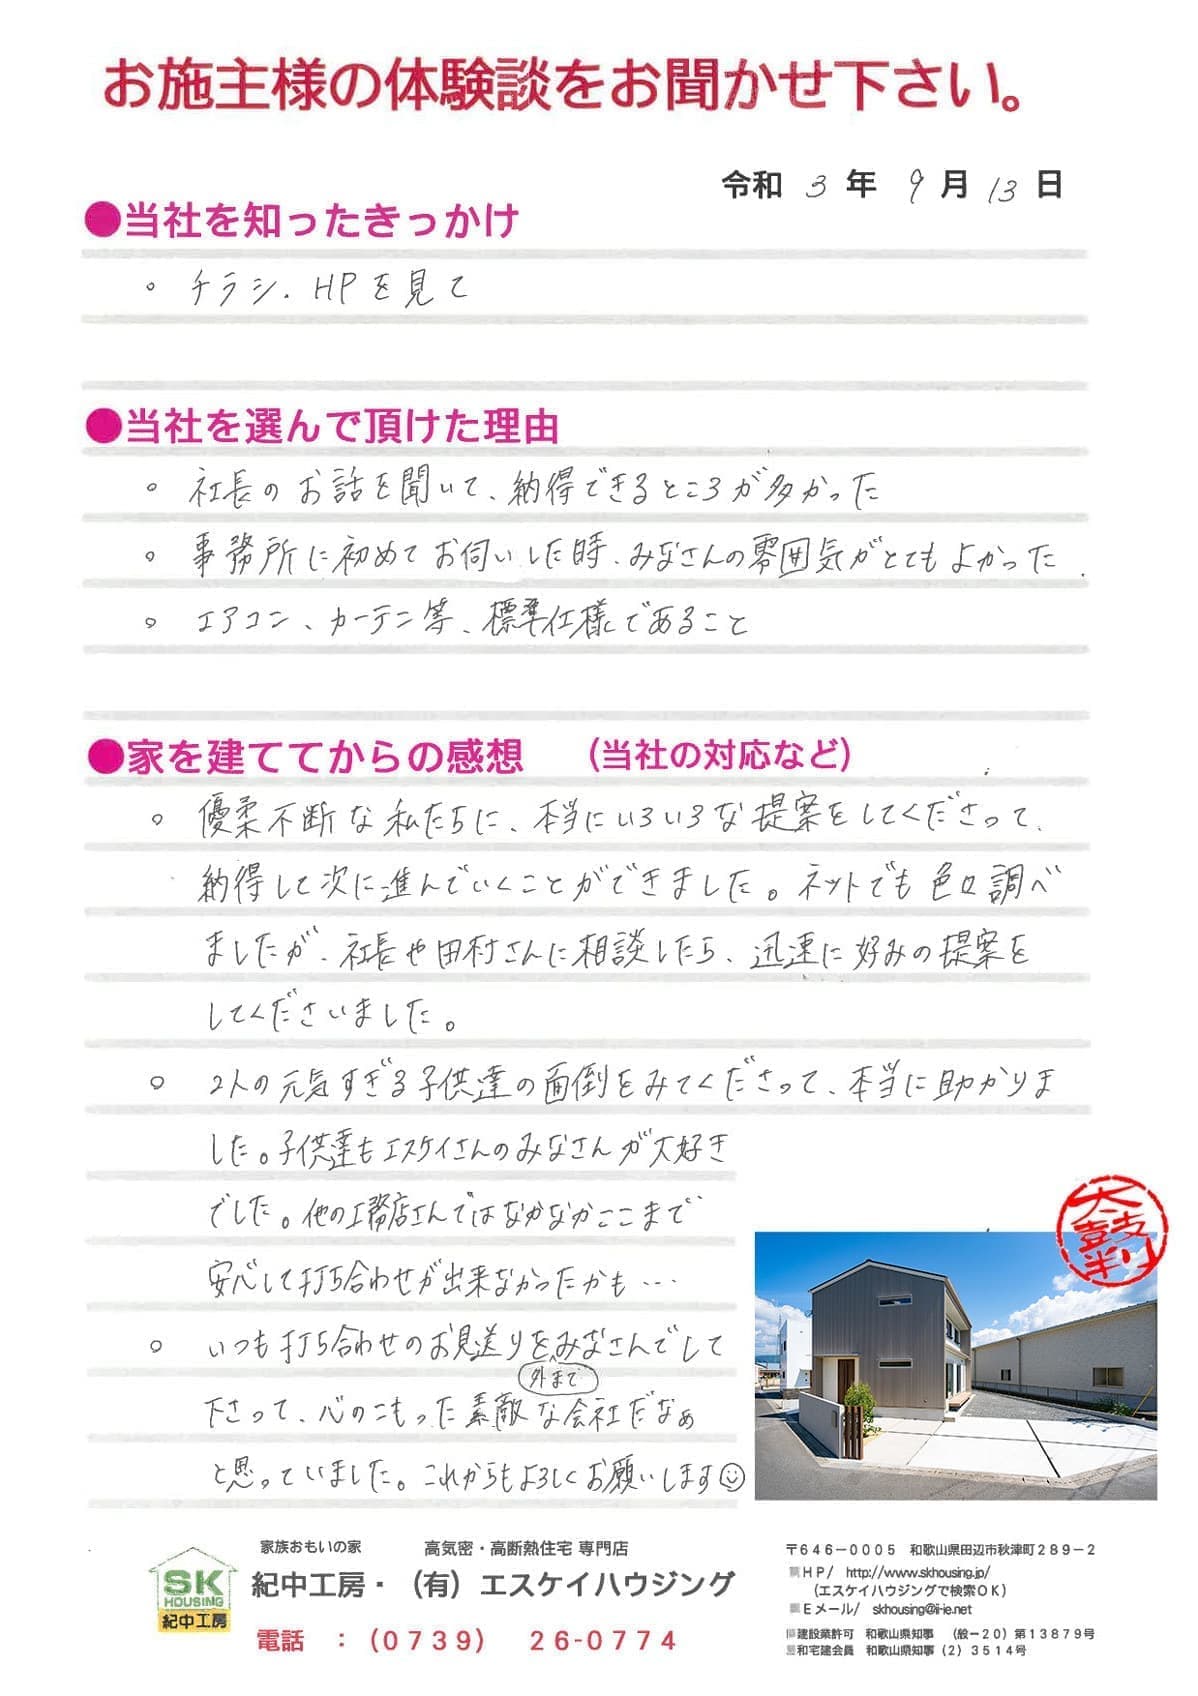 お施主様の体験談をお聞かせ下さい。
令和 3 年 9 月 13 日
●当社を知ったきっかけ
。チラシ、HPを見て
●当社を選んで頂けた理由
。社長のお話を聞いて、納得できるところが多かった
。事務所に初めてお伺いした時、みなさんの雰囲気がとてもよかった.
。エアコン、カーテン等、標準仕様であること
●家を建ててからの感想 (当社の対応など)
。優柔不断な私たちに、本当にいろいろな提案をしてくださって、
納得して次に進んでいくことができました。ネットでも色々調べ
ましたが、社長や田村さんに相談したら、迅速に好みの提案を
してくださいました。
。2人の元気すぎる子供達の面倒をみてくださって、本当に助かりま
した。子供達もエスケイさんのみなさんが大好き
でした。他の工務店さんではなかなかここまで
安心して打ち合わせが出来なかったかも…
。いつも打ち合わせのお見送りをみなさんでして
外まで
下さって、心のこもった素敵な会社だなぁ
と思っていました。これからもよろしくお願いします☺
太鼓判
SK
HOUSING
紀中工房
家族おもいの家 高気密・高断熱住宅 専門店
紀中工房・(有)エスケイハウジング
電話 :(0739) 26-0774
〒646-0005 和歌山県田辺市秋津町289-2
HP/ http://www.skhousing.jp/
(エスケイハウジングで検索OK)
Eメール/ skhousing@ii-ie.net
建設業許可 和歌山県知事 (般-20)第13879号
和宅建会員 和歌山県知事(2)3514号